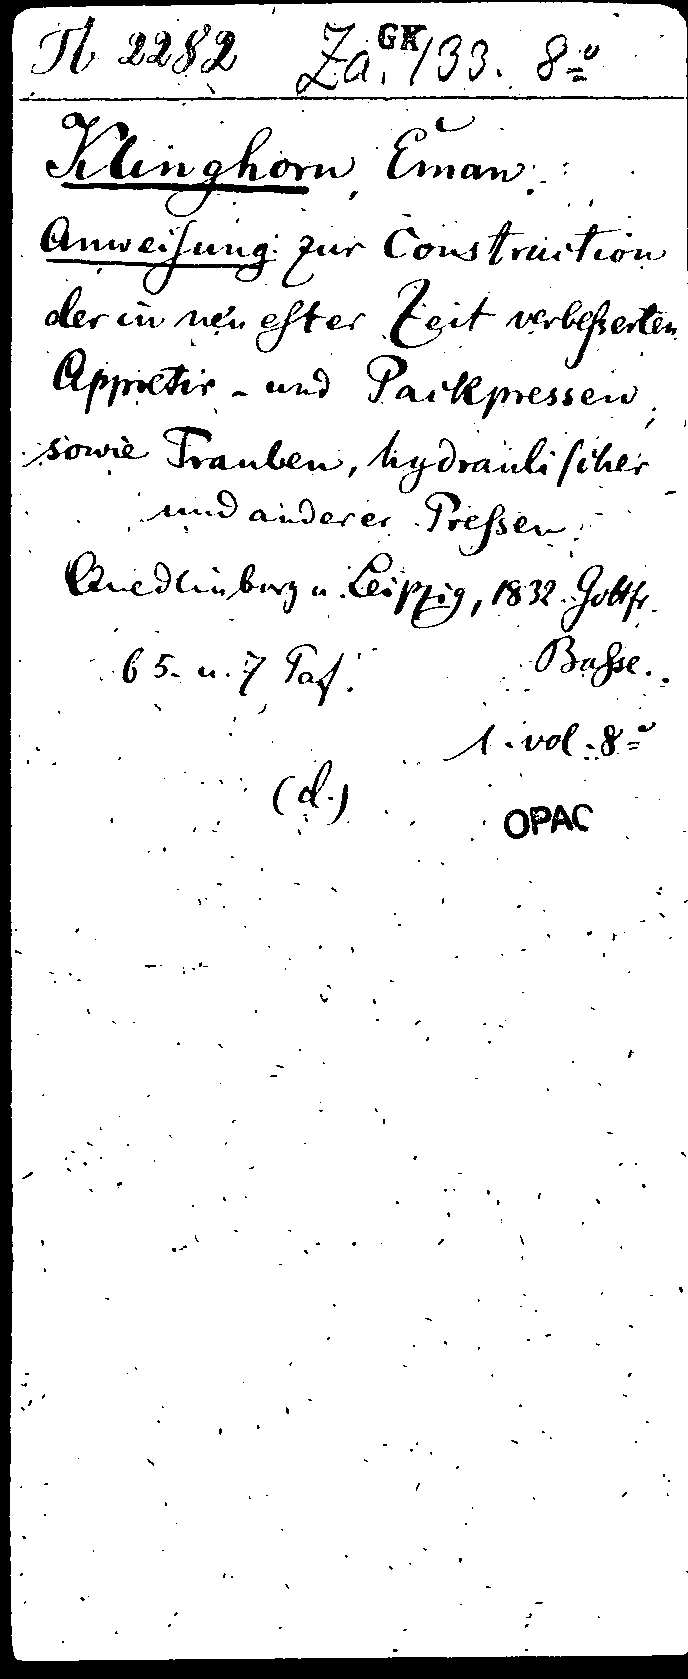 N 2282 Za. GK 133. 8=º
Klinghorn, Eman.
Anweiſung zur Construction
der in neueſter Zeit verbeſserten
Appretir- und Packpressen,
sowie Trauben, hydrauliſcher
und anderer Preſsen.
Quedlinburg u. Leipzig, 1832. Gottfr.
Baſse.
65. u. 7 Taf.
1. vol. 8=º
(d.)
OPAC